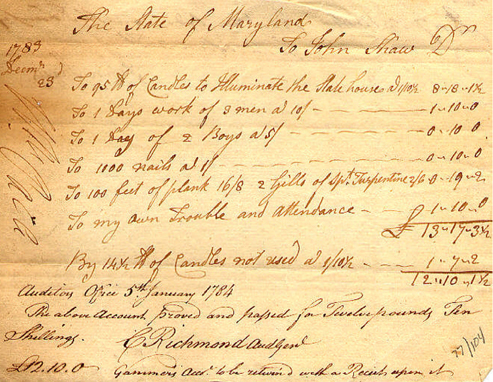 The State of Maryland
To John Shaw Dr
1783
Decmr
23
To 95 lb of Candles to Illuminate the State house a 1/10½ 8-18-1½
To 1 days work of 3 men a 10/ 1-10-0
To 1 Day of 2 Boys a 5/ 0-10-0
To 1000 nails a 1/ 0-10-0
To 100 feet of plank 16/8 2 Gills of Spt Turpentine 2/6 0-19-2
To my own Trouble and attendance 1-10-0
£ 13-17-3½
By 14½ lb of Candles not used a 1/10½ 1-7-2
12-10-1½
Auditors Office 5th January 1784
The above Account proved and passed for Twelve pounds Ten
Shillings.
C Richmond Aud Genl
£12.10.0 Acct. to be returnd with a Receipt upon it